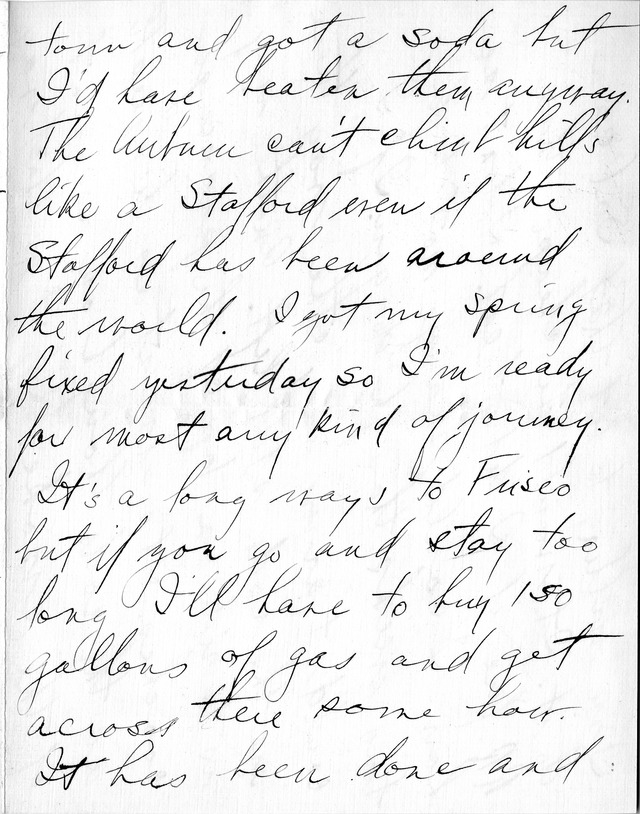 town and got a soda but
I'd have beaten them anyway.
The Auburn can't climb hills
like a Stafford even if the
Stafford has been around
the world. I got my spring
fixed yesterday so I'm ready
for most any kind of journey.
It's a long ways to Frisco
but if you go and stay too
long I'll have to buy 150
gallons of gas and get
across there some how.
It has been done and